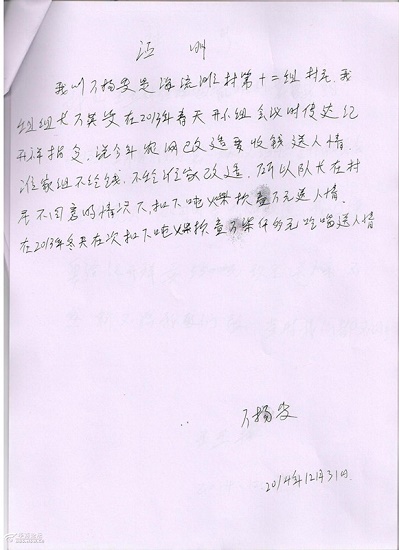 证明
我叫万扬安是海流滩村第十二组村民,我
组组长万英安在2013年春天开小组会议时传达纪
开祥指令,说今年农网改造要收钱送人情,
谁家组不给钱,不给谁家改造,所以队长在村
民不同意的情况下,扣下吨煤款壹万元送人情。
在2013年冬天在次扣下吨煤款壹万柒仟多元吃喝送人情
万扬安
2014年12月31日